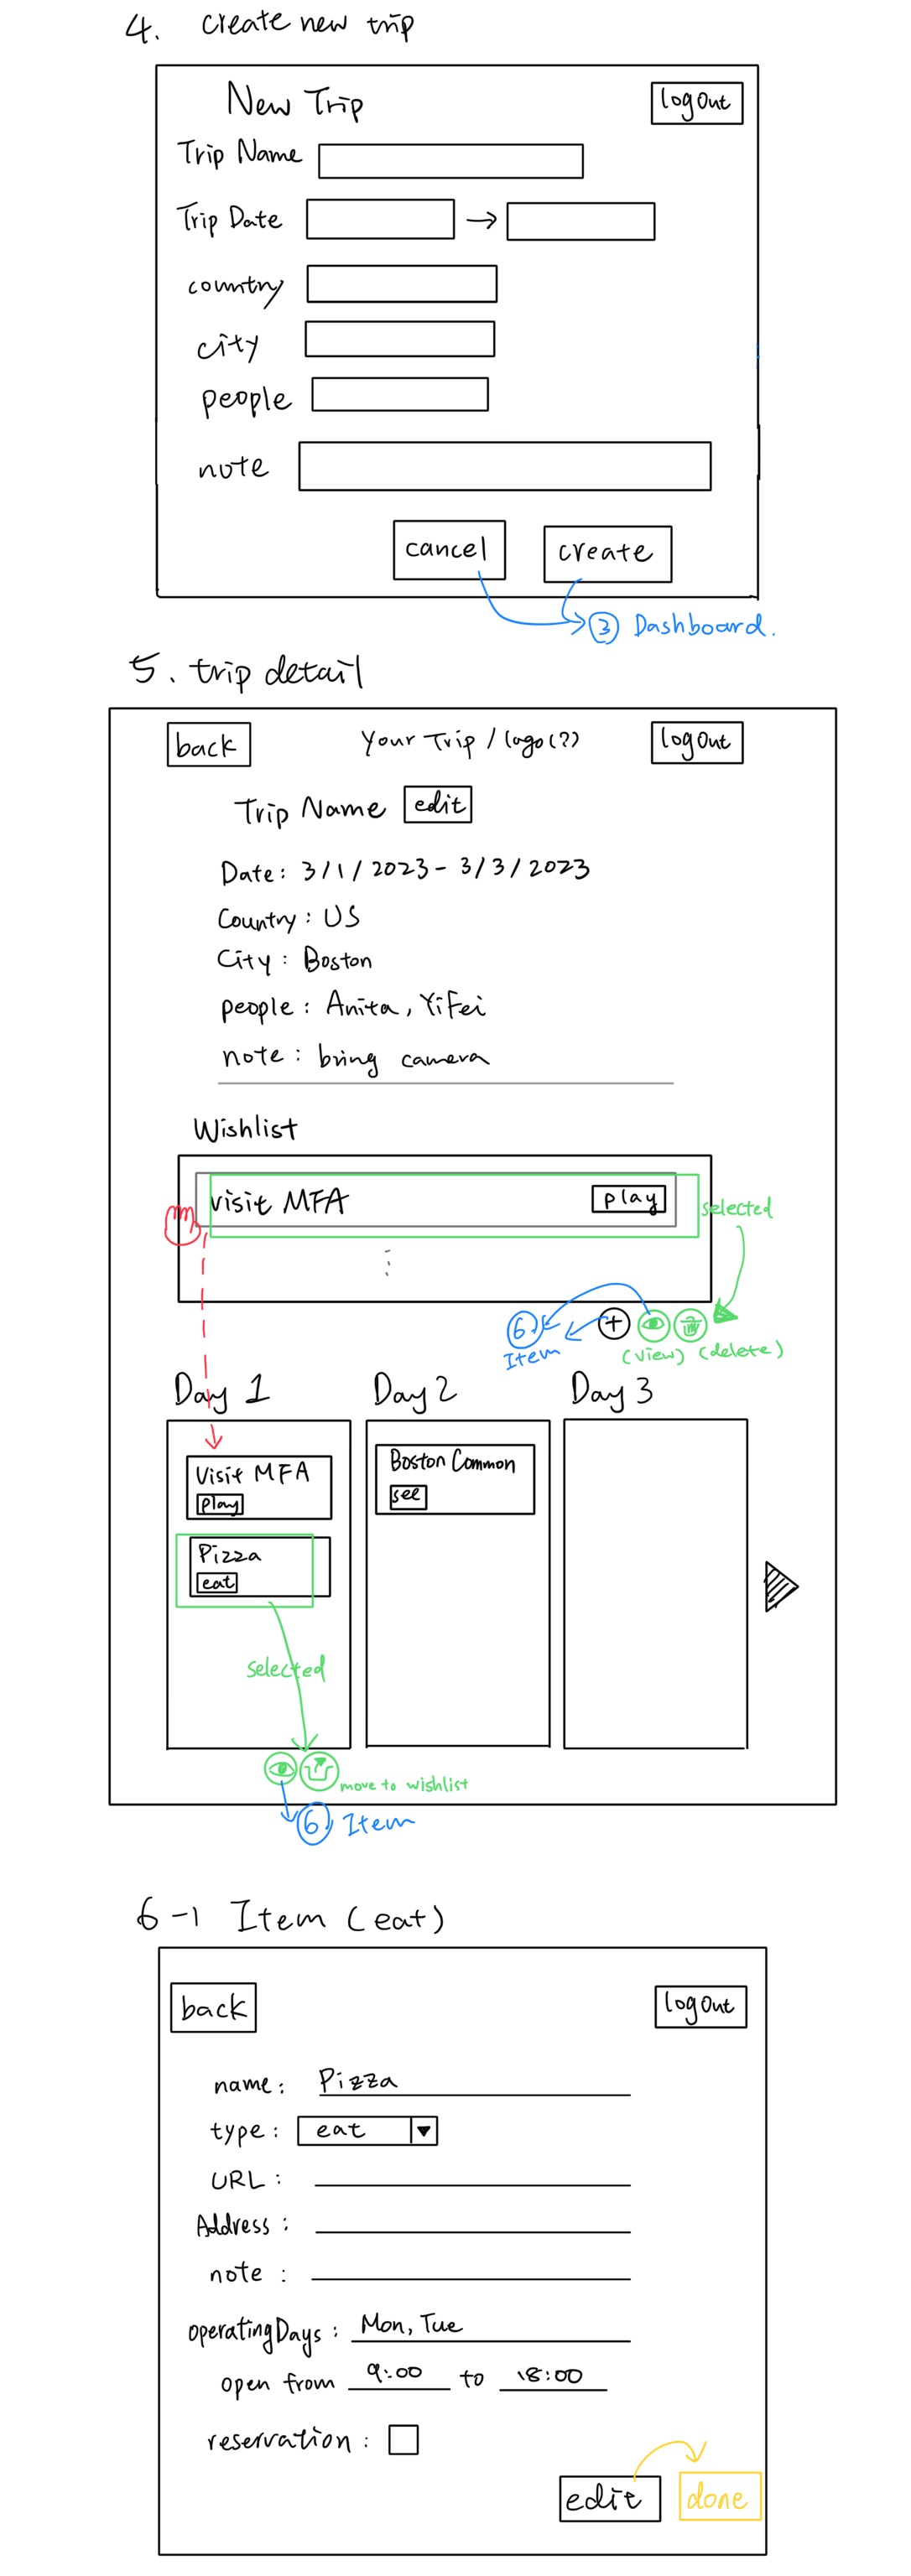 4. create new trip
New Trip
logout
Trip Name
Trip Date →
country
city
people
note
cancel
create
③ Dashboard.
5. trip detail
back
Your Trip / logo(??)
logout
Trip Name
edit
Date: 3/1/2023 - 3/3/2023
Country: US
City: Boston
people: Anita, YiFei
note: bring camera
Wishlist
visit MFA
play
selected
⑥
Item
+
(view) (delete)
Day 1
Day 2
Day 3
Visit MFA
play
Boston Common
see
Pizza
eat
selected
move to wishlist
⑥ Item
6-1 Item (eat)
back
logout
name: Pizza
type: eat
URL:
Address:
note:
operatingDays: Mon, Tue
open from 9:00 to 18:00
reservation:
edit
done